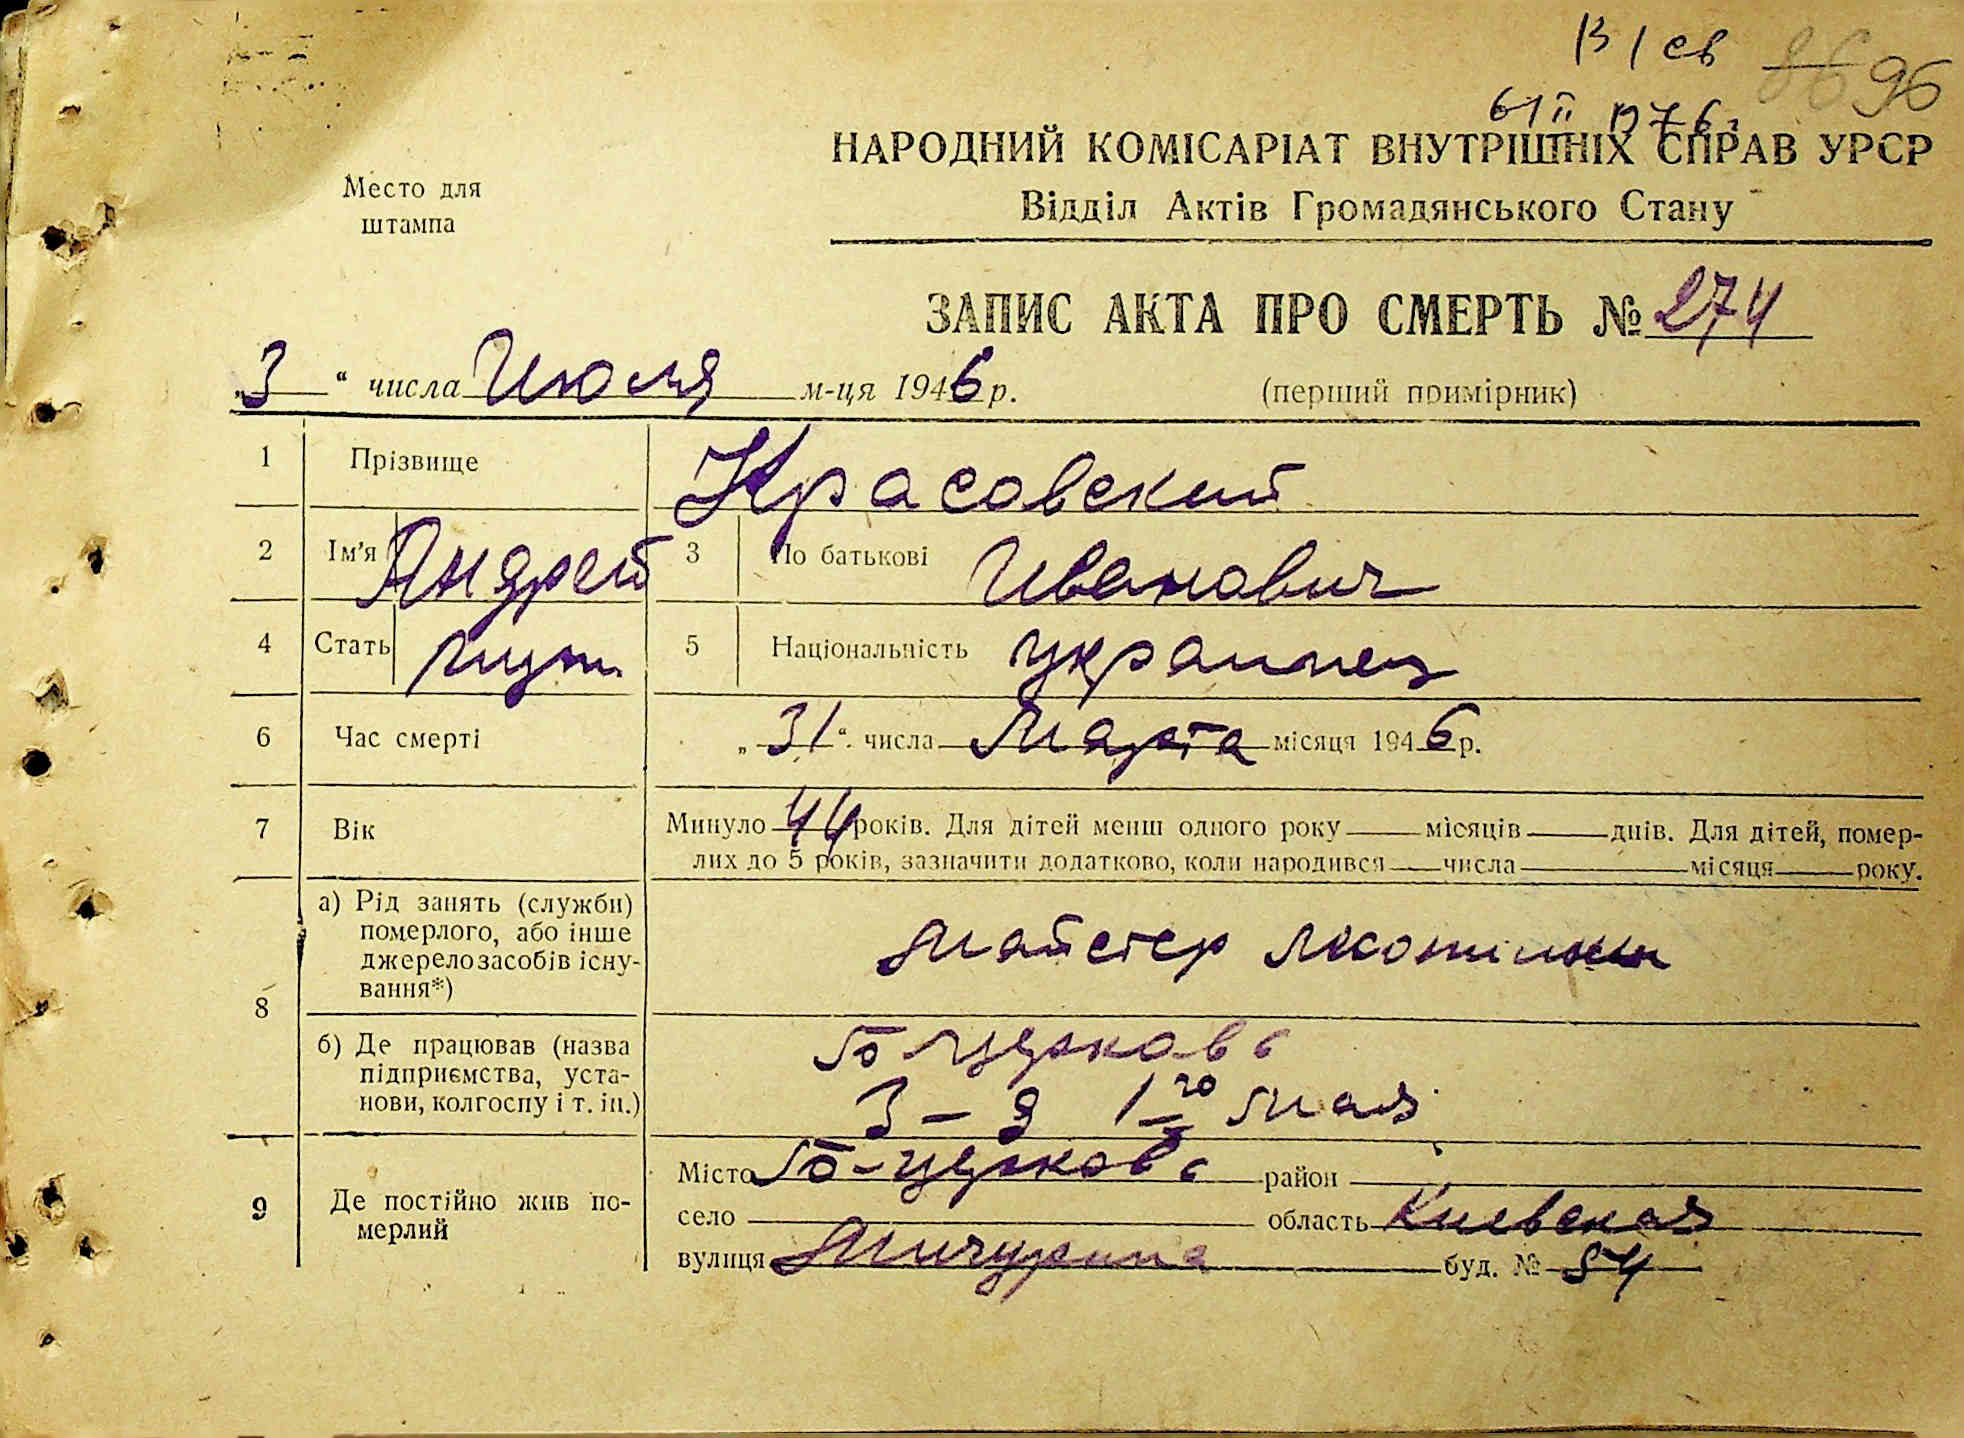 В / св 86 96
6/II 1976 г
НАРОДНИЙ КОМІСАРІАТ ВНУТРІШНІХ СПРАВ УРСР
Место для
штампа
Відділ Актів Громадянського Стану
ЗАПИС АКТА ПРО СМЕРТЬ № 274
„3“ числа Июля м-ця 1946 р. (перший примірник)
1 Прізвище Красовский
2 Ім'я Андрей 3 По батькові Иванович
4 Стать муж 5 Національність украинец
6 Час смерті „31“ числа Марта місяця 1946 р.
7 Вік Минуло 44 років. Для дітей менш одного року місяців днів. Для дітей, помер-
лих до 5 років, зазначити додатково, коли народився числа місяця року.
8 а) Рід занять (служби)
померлого, або інше
джерело засобів існу-
вання*)
майстер
б) Де працював (назва
підприємства, уста-
нови, колгоспу і т. ін.)
Б-церковь
З-д 1го мая
9 Де постійно жив по-
мерлий
Місто Б-церковь район
село область Киевская
вулиця Мичурина буд. № 54